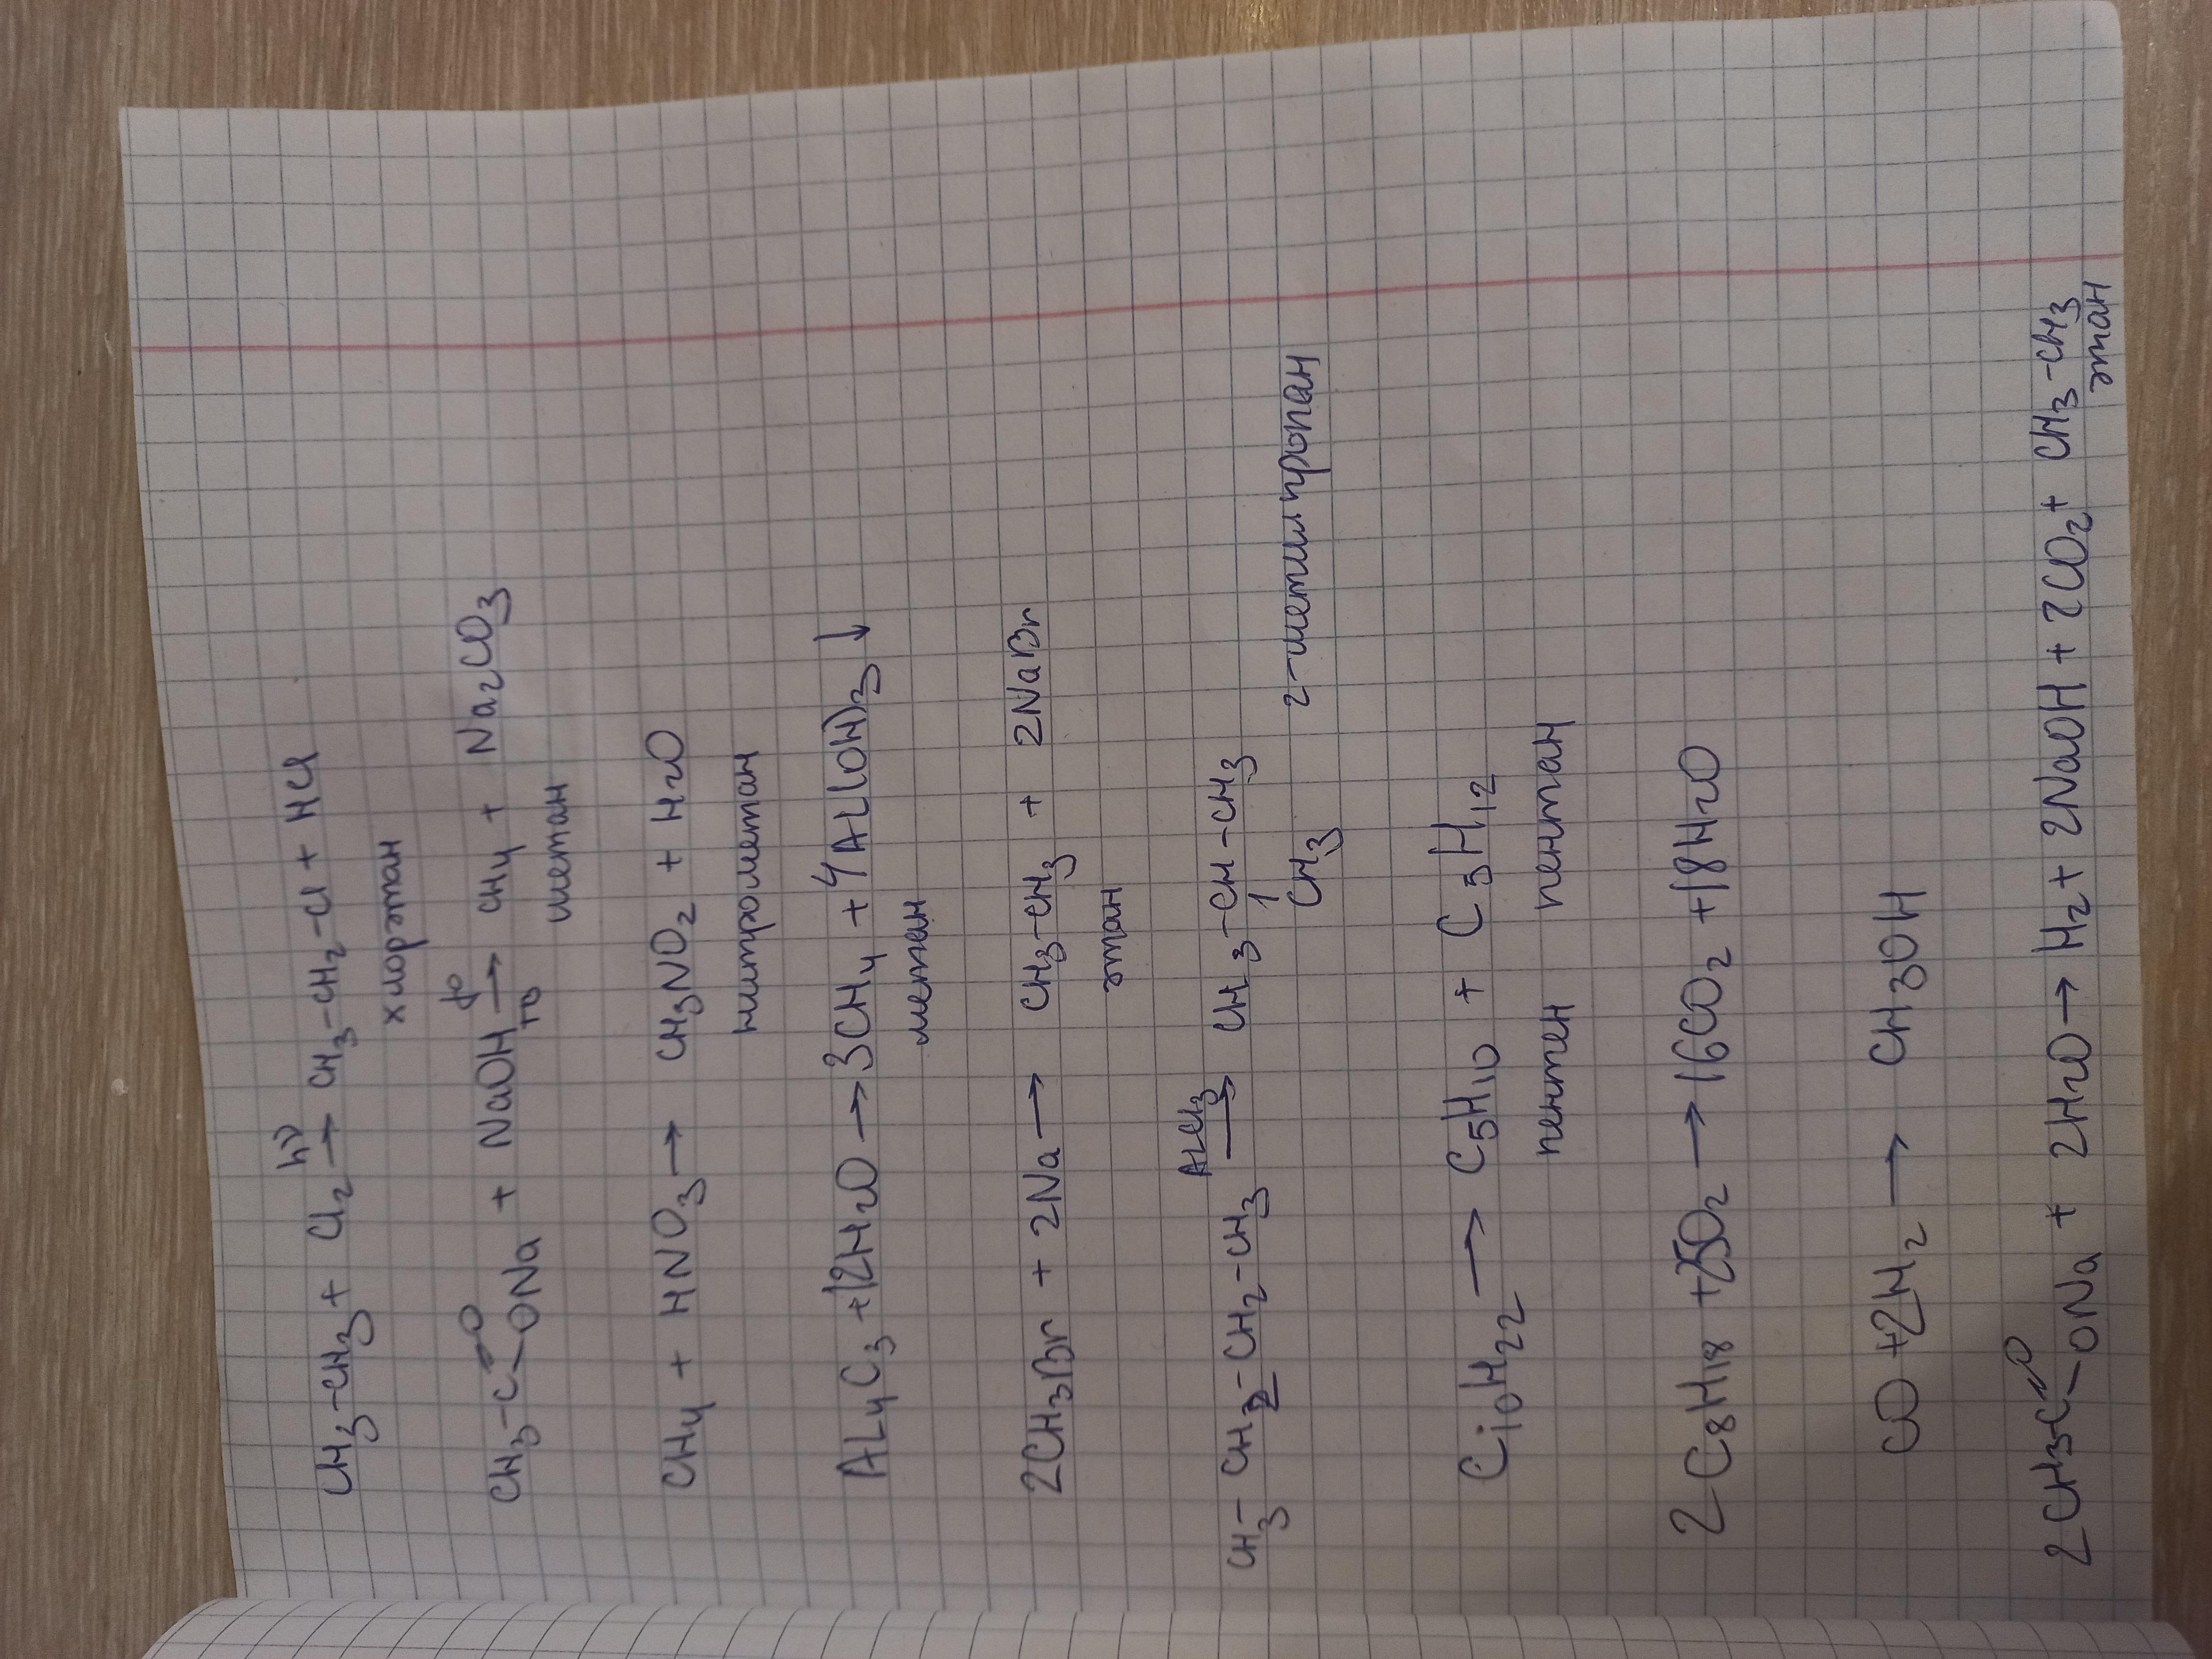 CH₃-CH₃ + Cl₂ hν→ CH₃-CH₂-Cl + HCl
хлорэтан
CH₃-C=O -ONa + NaOH t°→ CH₄ + Na₂CO₃
метан
CH₄ + HNO₃ → CH₃NO₂ + H₂O
нитрометан
AL₄C₃ + 12H₂O → 3CH₄ + 4AL(OH)₃↓
метан
2CH₃Br + 2Na → CH₃-CH₃ + 2NaBr
этан
CH₃-CH₂-CH₂-CH₃ ALCl₃→ CH₃-CH-CH₃
CH₃ 2-метилпропан
C₁₀H₂₂ → C₅H₁₀ + C₅H₁₂
пентен пентан
2C₈H₁₈ + 25O₂ → 16CO₂ + 18H₂O
CO + 2H₂ → CH₃OH
2CH₃C=O -ONa + 2H₂O → H₂ + 2NaOH + 2CO₂ + CH₃-CH₃
этан